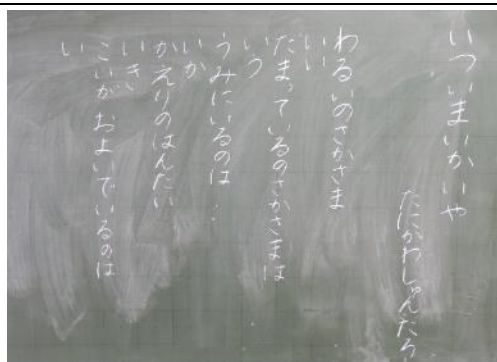 いつ いまかいや
たにかわしゅんたろ
わるいのさかさま
いい
だまっているのさかさまは
いう
うみにいるのは…
いか
かえりのはんたい
いき
こいが およいでいるのは
い